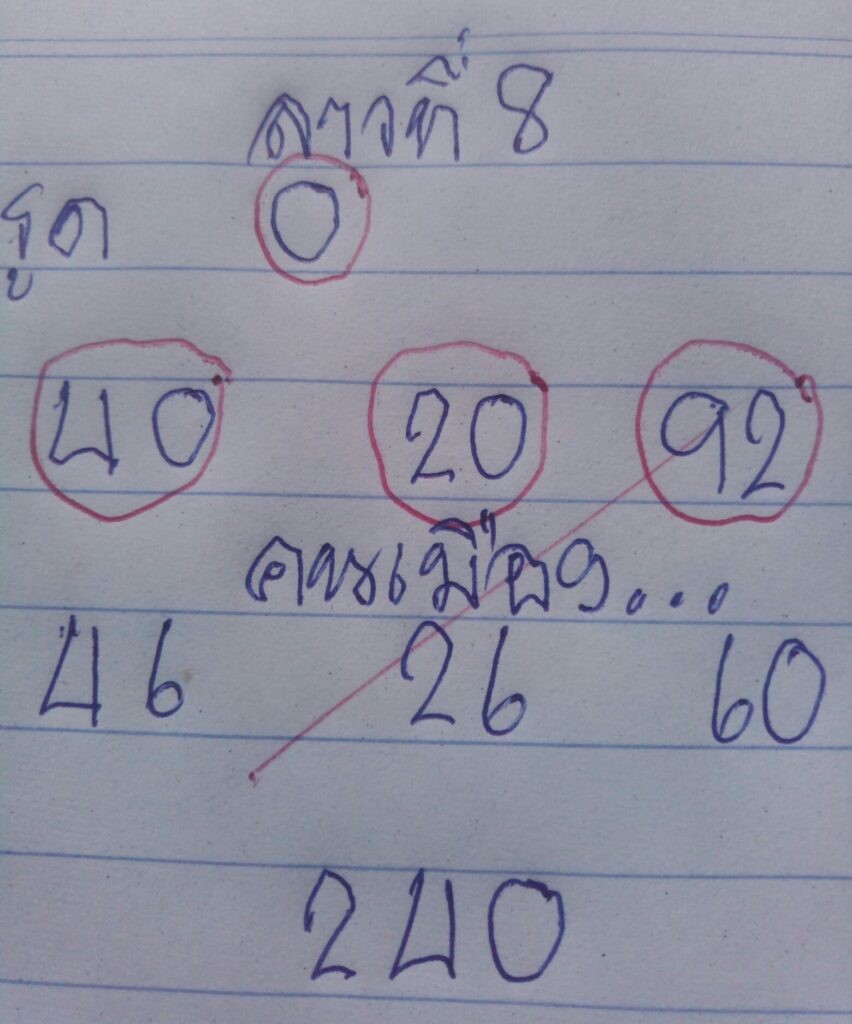 ลาวที่ 8
รูด 0
40 20 92
คนเมือง...
46 26 60
240